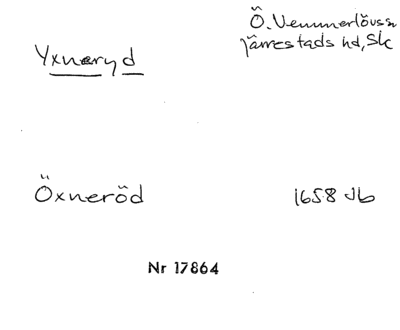 Ö. Vemmerlövs sn
Yxneryd
Järrestads hd, Sk
Öxneröd
1658 Jb
Nr 17864